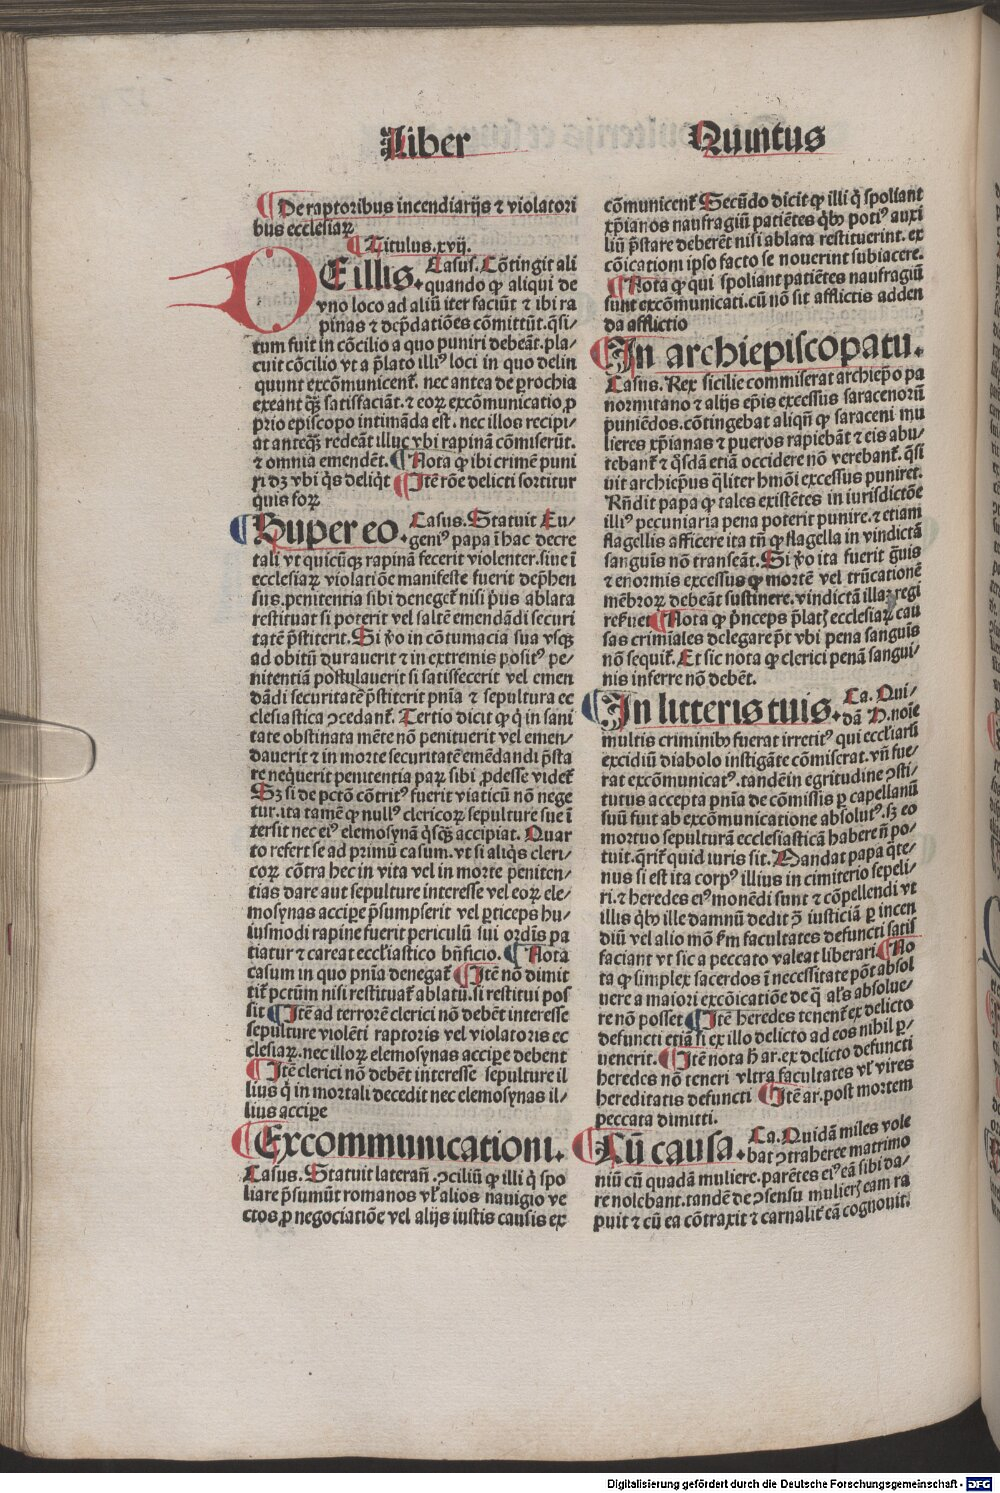 Liber Quintus
De raptoribus incendiarijs ⁊ violatori
bus ecclesiaꝝ
Titulus.xvij.
DE illis. Casus. Cōtingit ali
quando ꝙ aliqui de
vno loco ad aliū iter faciūt ⁊ ibi ra
pinas ⁊ dep̄datiōes cōmittūt.q̄si⸗
tum fuit in cōcilio a quo puniri debeāt.pla⸗
cuit cōcilio vt a p̄lato illiꝰ loci in quo delin
quunt excōmunicent᷑. nec antea de ꝑrochia
exeant qͣꝫ satisfaciāt.⁊ eoꝝ excōmunicatio,ꝓ
prio episcopo intimāda est. nec illos recipi⸗
at anteqͣꝫ redeāt illuc vbi rapinā cōmiserūt.
⁊ omnia emendēt. Nota ꝙ ibi crimē puni
ri dꝫ vbi q̇s deliq̇t Itē rōe delicti sortitur
quis foꝝ
Super eo. Casus. Statuit Eu⸗
geniꝰ papa ī hac decre
tali vt quicūqꝫ rapinā fecerit violenter.siue ī
ecclesiaꝝ violatiōe manifeste fuerit dep̄hen
sus.penitentia sibi deneget᷑ nisi p̄us ablata
restituat si poterit vel saltē emendādi securi
tatē p̄stiterit. Si v̄o in cōtumacia sua vsqꝫ
ad obitū durauerit ⁊ in extremis positꝰ pe⸗
nitentiā postulauerit si satisfecerit vel emen
dādi securitatē p̄stiterit pnīa ⁊ sepultura ec
clesiastica ↄcedant᷑. Tertio dicit ꝙ q̇ in sani
tate obstinata mēte nō penituerit vel emen⸗
dauerit ⁊ in morte securitatē emēdandi p̄sta
re neq̇uerit penitentia paꝝ sibi ꝓdesse videt᷑
Sꝫ si de pctō cōtritꝰ fuerit viaticū nō nege
tur.ita tamē ꝙ nullꝰ clericoꝝ sepulture sue ī
tersit nec eiꝰ elemosynā q̇sqͣꝫ accipiat. Quar
to refert se ad primū casum. vt si aliq̇s cleri⸗
coꝝ cōtra hec in vita vel in morte peniten⸗
tias dare aut sepulture interesse vel eoꝝ ele⸗
mosynas accipe p̄sumpserit vel ꝑticeps hu⸗
iusmodi rapine fuerit periculū sui ordīs pa
tiatur ⁊ careat ecclīastico bn̄ficio. Nota
casum in quo pnīa denegat᷑ Itē nō dimit
tit᷑ pctūm nisi restituat᷑ ablatū.si restitui pos
sit Itē ad terrorē clerici nō debēt interesse
sepulture violēti raptoris vel violatoris ec
clesiaꝝ.nec illoꝝ elemosynas accipe debent
Itē clerici nō debēt interesse sepulture il
lius q̇ in mortali decedit nec elemosynas il⸗
lius accipe
Excommunicationi.
Casus. Statuit laterañ. ↄciliū ꝙ illi q̇ spo
liare p̄sumūt romanos vl᷑ alios nauigio ve
ctos ꝓ negociatiōe vel alijs iustis causis ex
cōmunicent᷑ Secūdo dicit ꝙ illi q̇ spoliant
xp̄ianos naufragiū patiētes qͥbꝰ potiꝰ auxi
liū p̄stare deberēt nisi ablata restituerint. ex
cōicationi ipso facto se nouerint subiacere.
Nota ꝙ qui spoliant patiētes naufragiū
sunt excōmunicati.cū nō sit afflictis adden
da afflictio
In archiepiscopatu.
Casus. Rex sicilie commiserat archiep̄o pa
normitano ⁊ alijs ep̄is excessus saracenorū
puniēdos.cōtingebat aliqñ ꝙ saraceni mu
lieres xp̄ianas ⁊ pueros rapiebāt ⁊ eis abu⸗
tebant᷑ ⁊ q̄sdā etiā occidere nō verebant᷑. q̄si
uit archiep̄us q̄liter hmōi excessus puniret.
Rn̄dit papa ꝙ tales existētes in iurisdictōe
illiꝰ pecuniaria pena poterit punire.⁊ etiam
flagellis afficere ita tn̄ ꝙ flagella in vindictā
sanguis nō transeāt. Si v̄o ita fuerit g̈uis
⁊ enormis excessus ꝙ mortē vel trūcationē
mēbroꝝ debeāt sustinere.vindictā illaꝝ regi
reſuet Nota ꝙ p̄nceps p̄latꝭ ecclesiaꝝ cau
sas crimiales delegare pōt vbi pena sanguis
nō sequit᷑. Et sic nota ꝙ clerici penā sangui⸗
nis inferre nō debēt.
In litteris tuis. Ca. Qui⸗
dā H. noīe
multis criminibꝰ fuerat irretitꝰ qui ecclīarū
excidiū diabolo instigāte cōmiserat. vñ fue⸗
rat excōmunicatꝰ. tandē in egritudine ↄsti⸗
tutus accepta pnīa de cōmissis ꝑ capellanū
suū fuit ab excōmunicatione absolutꝰ. sꝫ eo
mortuo sepulturā ecclesiasticā habere ñ po⸗
tuit.q̄rit᷑ quid iuris sit. Mandat papa q̄te⸗
nus si est ita corpꝰ illius in cimiterio sepeli⸗
ri.⁊ heredes eiꝰ monēdi sunt ⁊ cōpellendi vt
illis qͥbꝰ ille damnū dedit ↄ̄ iusticiā ꝑ incen
diū vel alio mō ẜm facultates defuncti satis
faciant vt sic a peccato valeat liberari No
ta ꝙ simplex sacerdos ī necessitate pōt absol
uere a maiori excōicatiōe de q̄ al̄s absolue⸗
re nō posset Itē heredes tenent᷑ ex delicto
defuncti etiā si ex illo delicto ad eos nihil ꝑ⸗
uenerit. Itē nota h̄ ar.ex delicto defuncti
heredes nō teneri vltra facultates vl᷑ vires
hereditatis defuncti Itē ar.post mortem
peccata dimitti.
Cū causa. Ca. Quidā miles vole
bat ↄtrahere matrimo
niū cū quadā muliere.parētes eiꝰ eā sibi da⸗
re nolebant.tandē de ↄsensu mulierꝭ eam ra
puit ⁊ cū ea cōtraxit ⁊ carnalit᷑ eā cognouit.
Digitalisierung gefördert durch die Deutsche Forschungsgemeinschaft - DFG